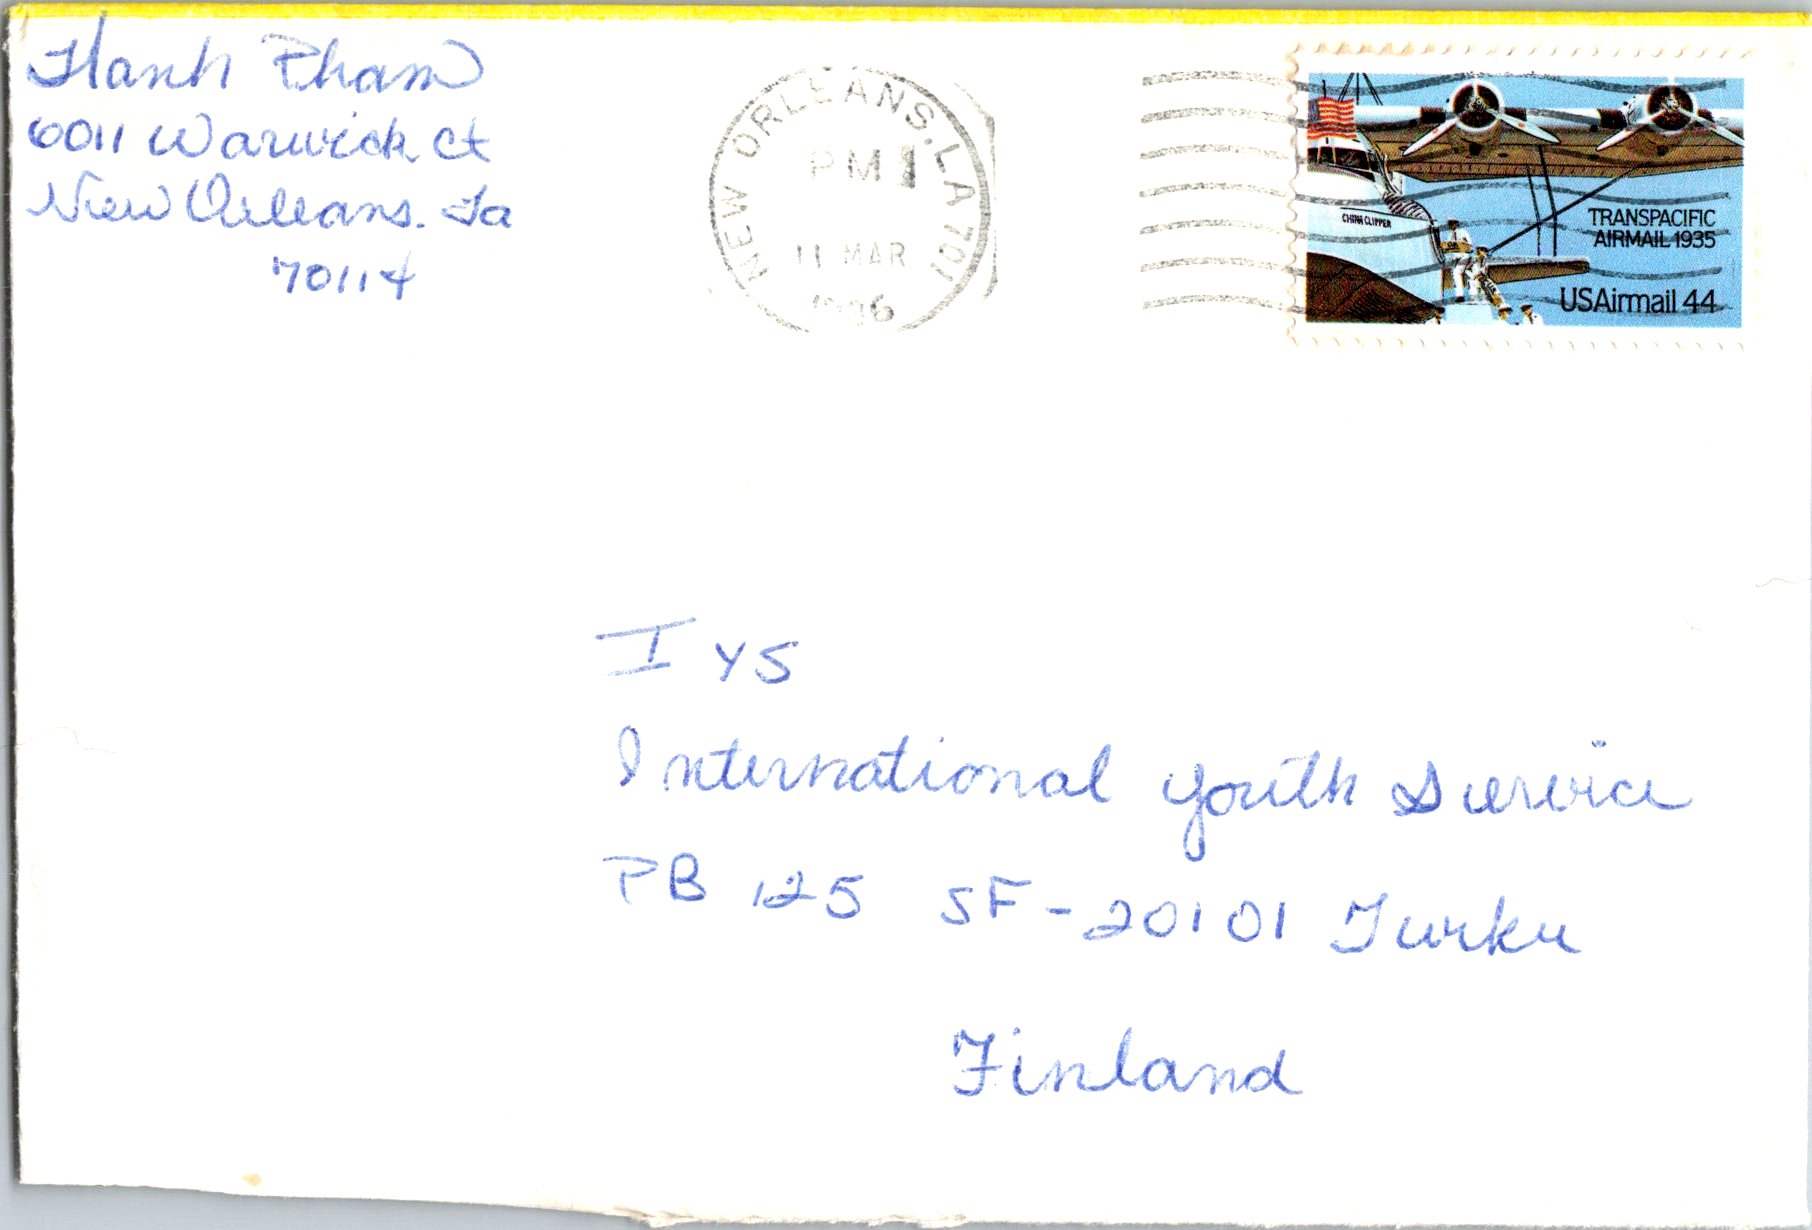 Hanh Pham
6011 Warwick Ct
New Orleans. La
70114
NEW ORLEANS, LA 701
PM
11 MAR
CHINA CLIPPER
TRANSPACIFIC
AIRMAIL 1935
USAirmail 44
IYS
International Youth Service
PB 125 SF-20101 Turku
Finland